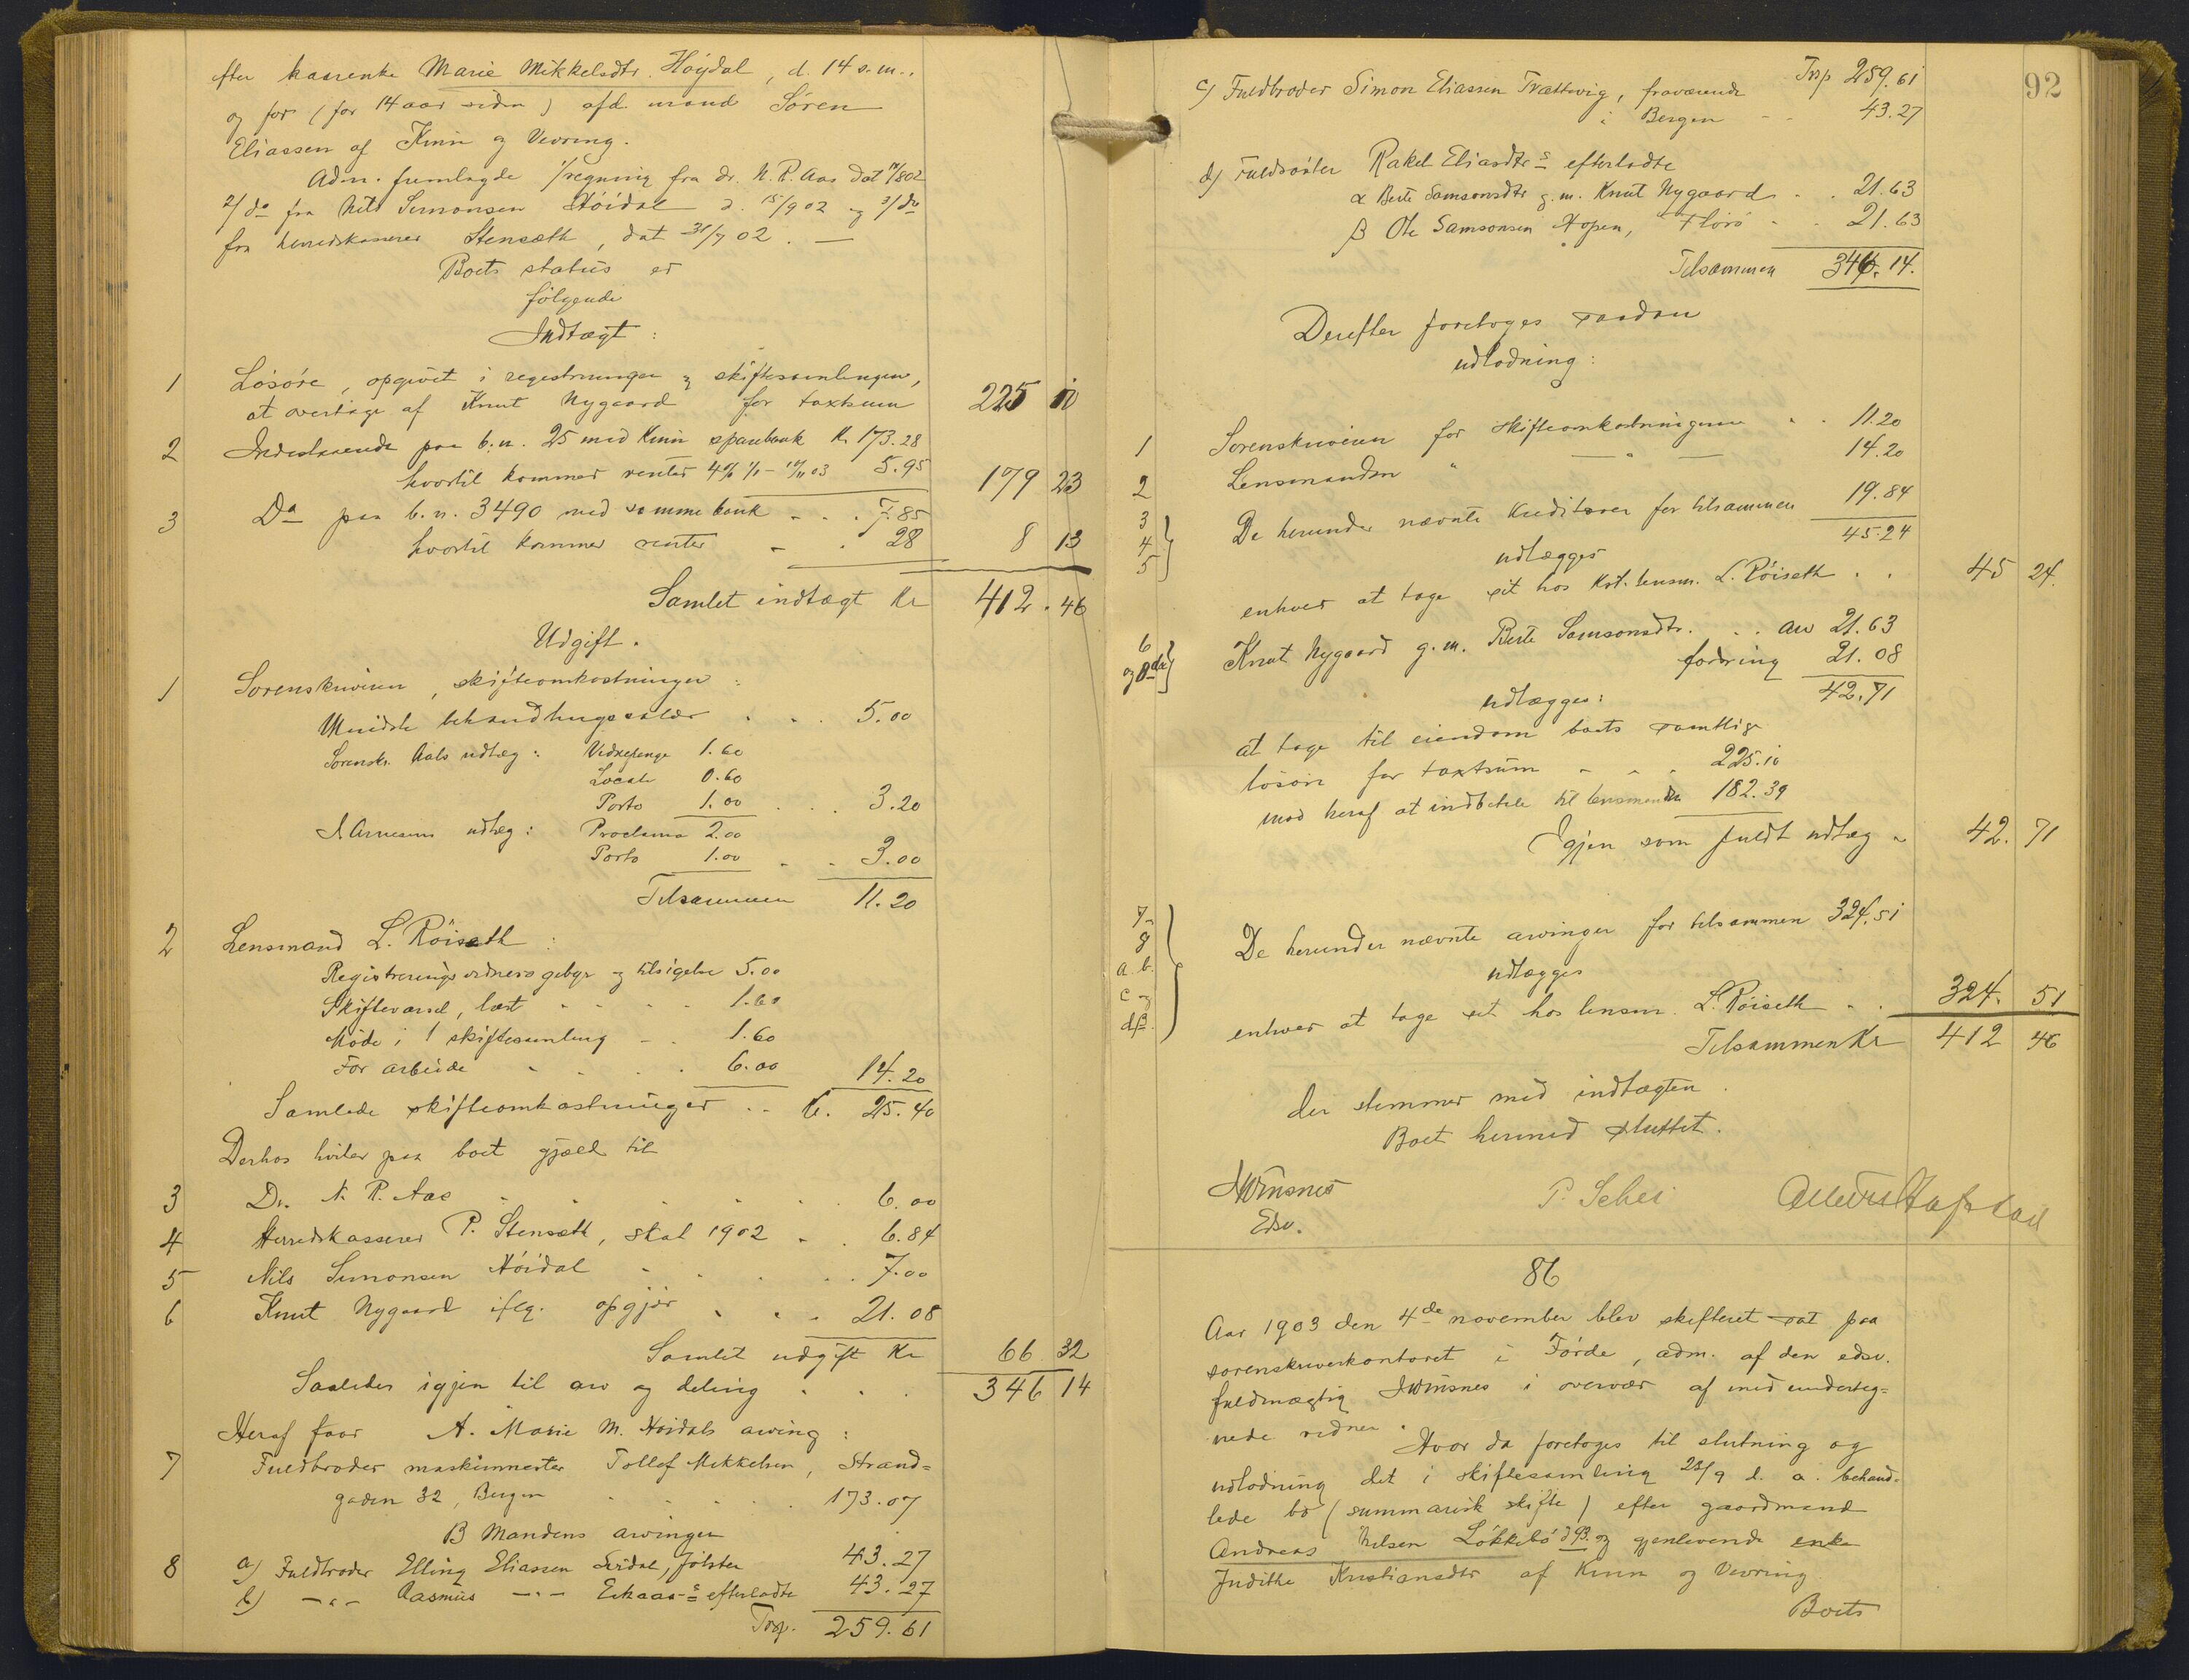 efter kaarenke Marie Mikkelsdtr. Høydal, d. 14 s. m.,
og før (for 14 aar siden) afd. mand Søren
Eliassen af Kinn og Vevring.
Adm. fremlagde 1/ regning fra dr. N. P. Aas dat
2/ do fra Nils Simonsen Høidal d. 15/9 02 og 3/ do
fra herredskasserer Stensæth, dat 31/7 02. —
Boets status er
følgende
Indtægt:
1 Løsøre, opgivet i registreringen og skiftesamlingen,
at overtage af Knut Nygaard for taxtsum 225 10
2 Indestaaende paa b.n. 25 med Kinn sparebank Kr. 173.28
hvortil kommer renter 4% 5.95 179 23
3 Do paa b.n. 3490 med samme bank . . . 7.85
hvortil kommer renter - . 28 8 13
Samlet indtægt Kr 412.46
Udgift.
1 Sorenskriveren, skifteomkostninger:
Mindste behandlingssalær . . . 5.00
Sorenskr. Aals udlæg: Vidnepenge 1.60
Locale 0.60
Porto 1.00 . . . 3.20
Arnesens udlæg: Proclama 2.00
Porto 1.00 - - 3.00
Tilsammen 11.20
2 Lensmand L. Röiseth:
Registreringsvidners gebyr og tilsigelse 5.00
Skiftevarsel, læst - - - - 1.60
Møde i 1 skiftesamling - . 1.60
For arbeide - - . . 6.00 14.20
Samlede skifteomkostninger .. Kr. 25.40
Derhos hviler paa boet gjæld til
3 Dr. N. P. Aas - . - . 6.00
4 Herredskasserer P. Stensæth, skat 1902 - . 6.84
5 Nils Simonsen Höidal - . . . 7.00
6 Knut Nygaard iflg. opgjør . . . 21.08
Samlet udgift Kr 66 32
Saaledes igjen til arv og deling . . . 346 14
Heraf faar A. Marie M. Høidals arving:
7 Fuldbroder maskinmester Tollef Mikkelsen, Strand=
gaden 32, Bergen . . . . 173.07
B Mandens arvinger
8 a) Fuldbroder Elling Eliassen Årdal, Jølster 43.27
b) -"- Rasmus -"- efterladte 43.27
Trsp. 259.61
92
Trsp 259.61
c) Fuldbroder Simon Eliassen Trættevig, fraværende
i Bergen - - 43.27
d) Fuldsøster Rakel Eliasdtrs efterladte
α Berte Samsonsdtr g. m. Knut Nygaard . . 21.63
β Ole Samsonsen Hopen, Florö . . 21.63
Tilsammen 346.14.
Derefter foretoges saadan
udlodning:
1 Sorenskriveren for skifteomkostningerne . . 11.20
2 Lensmanden " — " — 14.20
3
4
5 De herunder nævnte kreditorer for tilsammen 19.84
45.24
udlægges
enhver at tage sit hos Kst. lensm. L. Röiseth . . 45 24.
6
og 8dα Knut Nygaard g. m. Berte Samsonsdtr. . . arv 21.63
fordring 21.08
42.71
udlægges:
at tage til eiendom boets samtlige
løsøre for taxtsum - - - 225.10
mod heraf at indbetale til lensmanden 182.39
Igjen som fuldt udlæg - 42. 71
7
8
a. b.
c og
dβ. De herunder nævnte arvinger for tilsammen 324.51
udlægges
enhver at tage sit hos lensm. L. Röiseth . . 324. 51
Tilsammen Kr 412 46
der stemmer med indtægten.
Boet hermed sluttet.
P. Schei
Edsv.
86
Aar 1903 den 4de november blev skifteret sat paa
sorenskriverkontoret i Førde, adm. af den edsv.
fuldmægtig i overvær af medunderteg=
nede vidner.
Hvor da foretoges til slutning og
udlodning det i skiftesamling 23/9 d. a. behand=
lede bo (summarisk skifte) efter gaardmand
Andreas Nilsen Løkkebø d. 93. og gjenlevende enke
Judithe Kristiansdtr af Kinn og Vevring
Boets